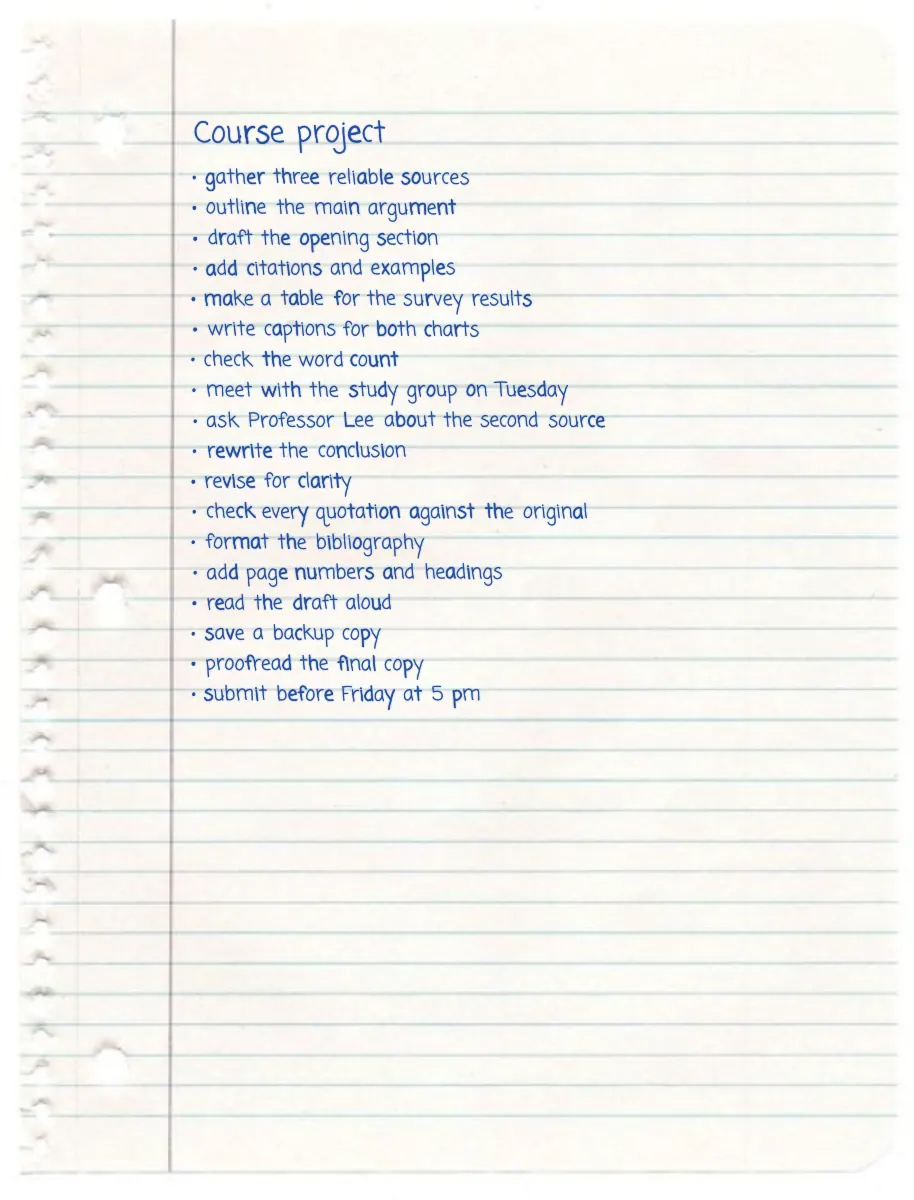 Course project
· gather three reliable sources
· outline the main argument
· draft the opening section
· add citations and examples
· make a table for the survey results
· write captions for both charts
· check the word count
· meet with the study group on Tuesday
· ask Professor Lee about the second source
· rewrite the conclusion
· revise for clarity
· check every quotation against the original
· format the bibliography
· add page numbers and headings
· read the draft aloud
· save a backup copy
· proofread the final copy
· submit before Friday at 5 pm